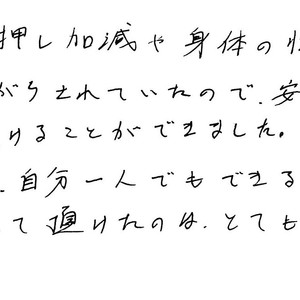 押し加減や身体の
がらされていたので、安
けることができました。
、自分一人でもできる
て頂けたのは、とても